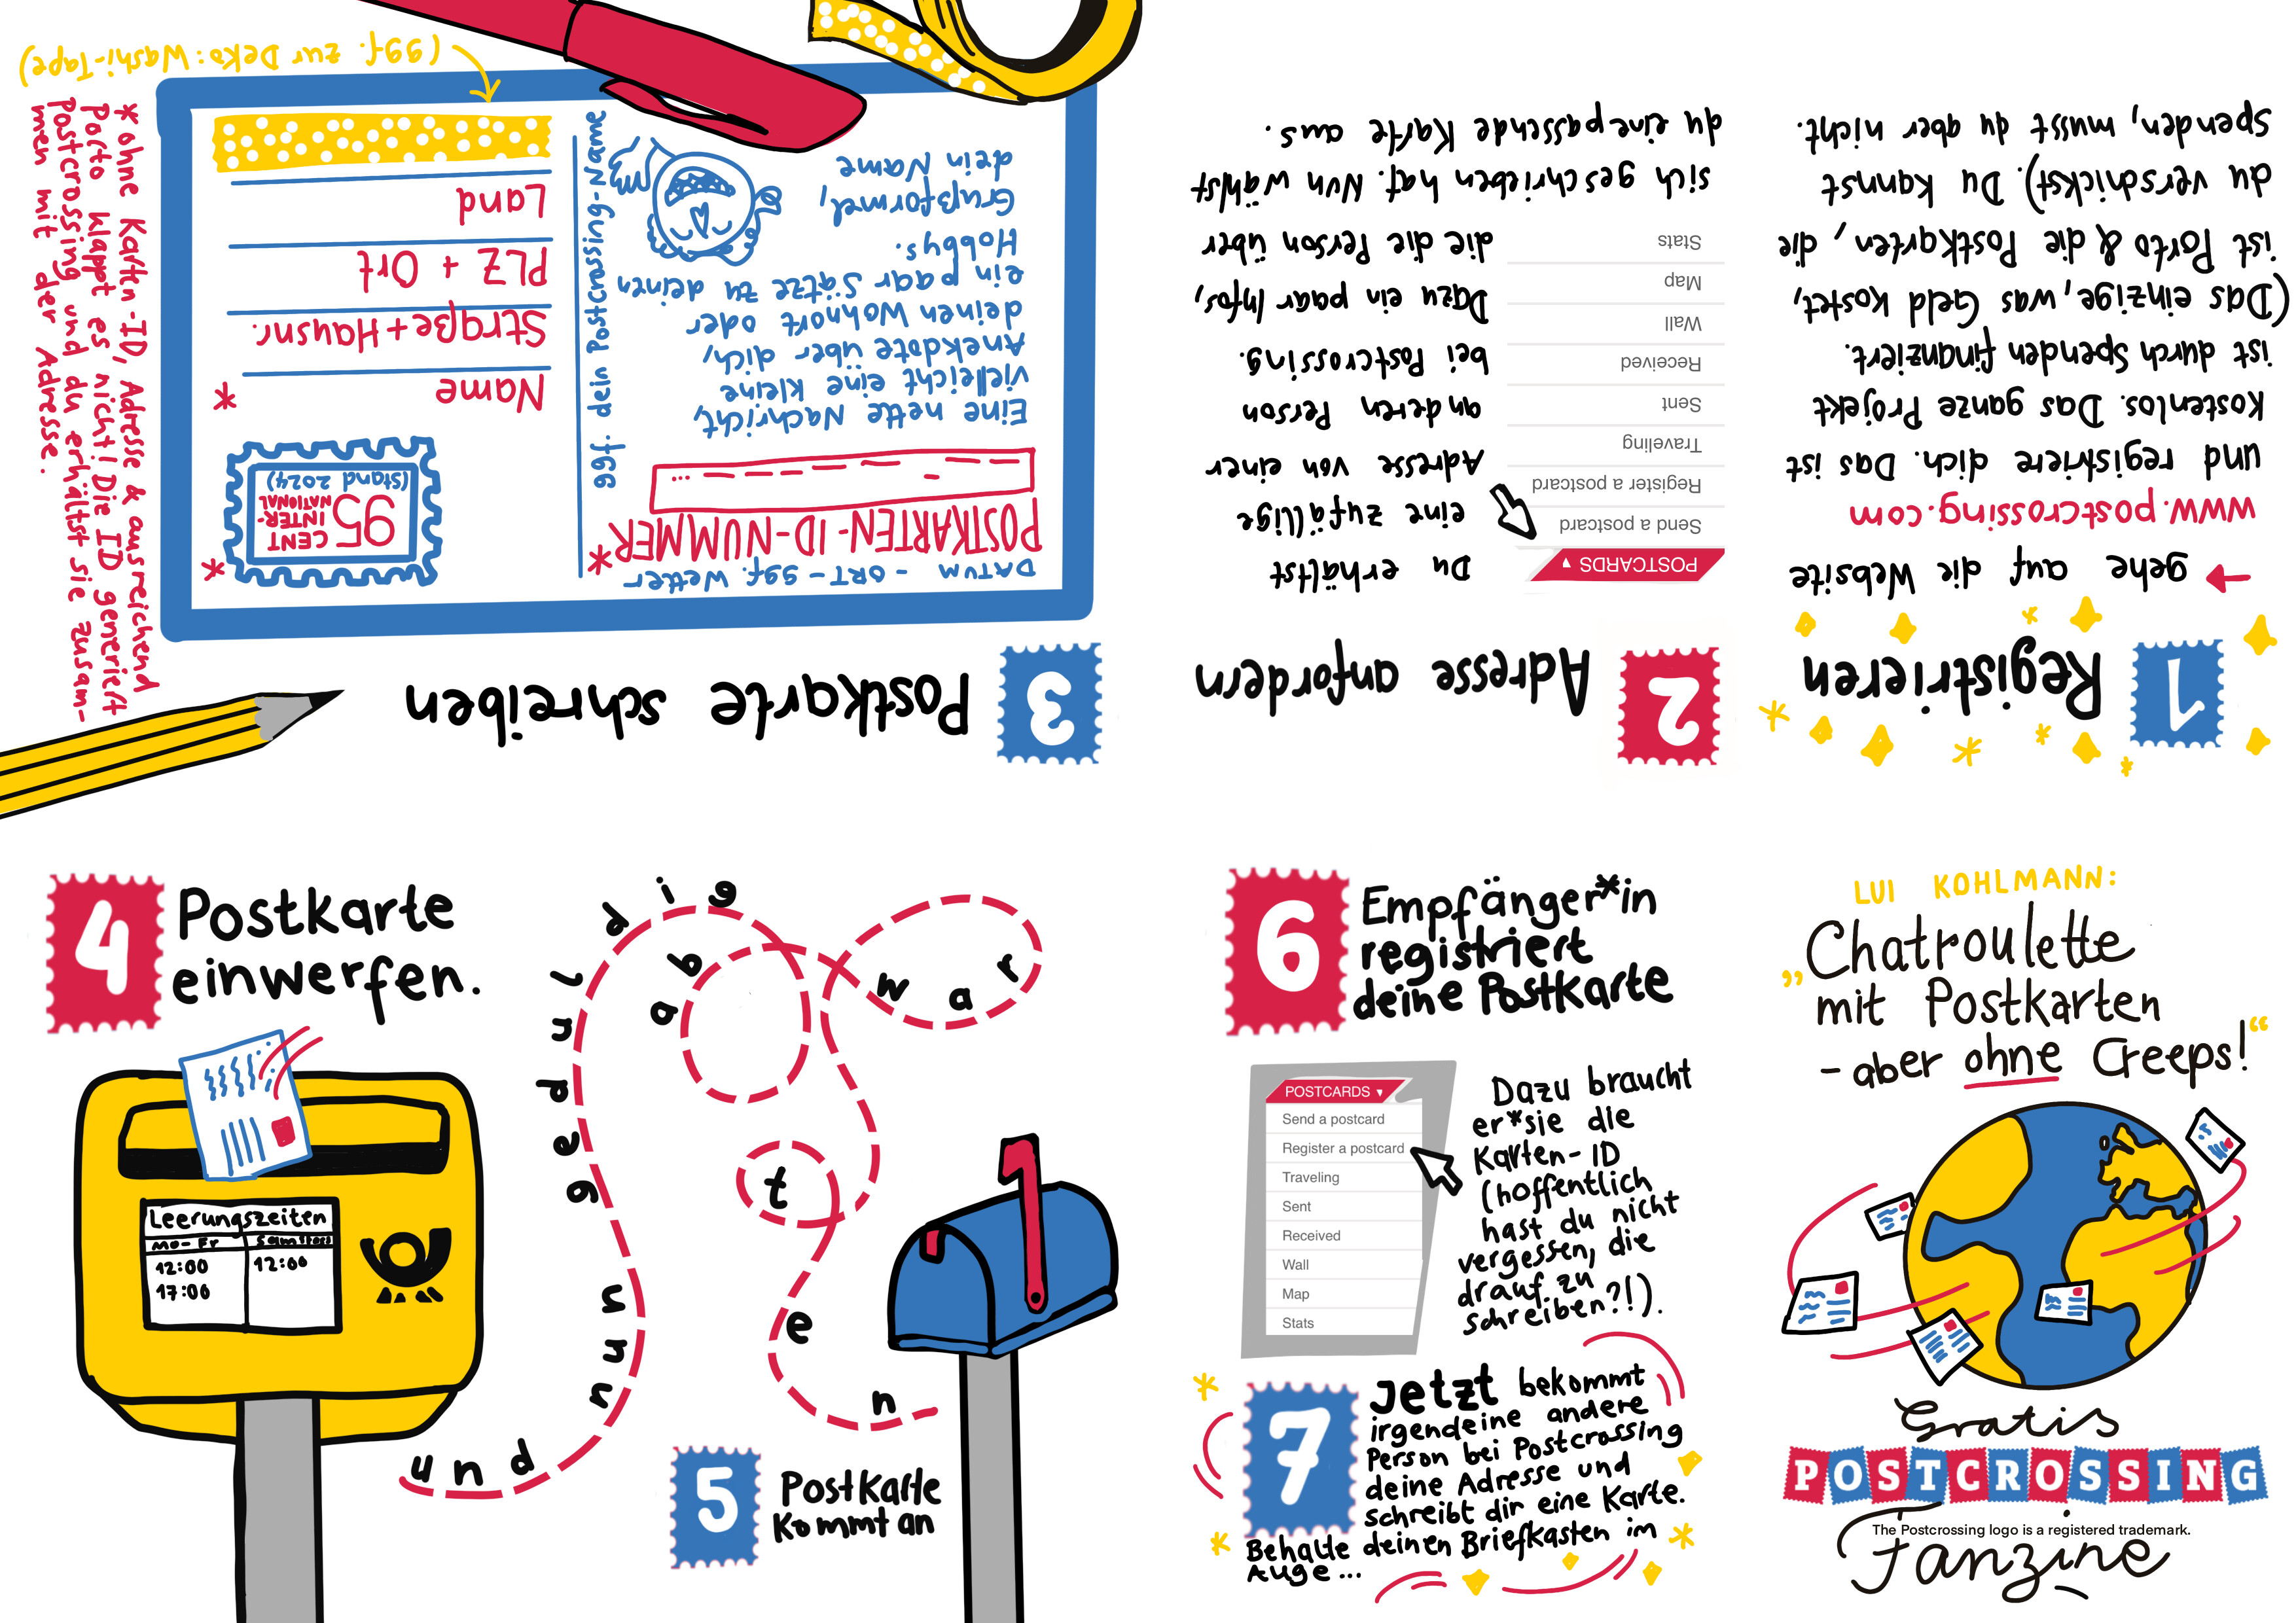 LUI KOHLMANN:
„Chatroulette
mit Postkarten
- aber ohne Creeps!“
Gratis
POSTCROSSING
The Postcrossing logo is a registered trademark.
Fanzine
1 Registrieren
gehe auf die Website
www.postcrossing.com
und registriere dich. Das ist
kostenlos. Das ganze Projekt
ist durch Spenden finanziert.
(Das einzige, was Geld kostet,
ist Porto & die Postkarten, die
du verschickst). Du kannst
spenden, musst du aber nicht.
2 Adresse anfordern
POSTCARDS ▼
Send a postcard
Register a postcard
Traveling
Sent
Received
Wall
Map
Stats
Du erhältst
eine zufällige
Adresse von einer
anderen Person
bei Postcrossing.
Dazu ein paar Infos,
die die Person über
sich geschrieben hat. Nun wählst
du eine passende Karte aus.
3 Postkarte schreiben
DATUM - ORT - ggf. Wetter
*POSTKARTEN-ID-NUMMER
Eine nette Nachricht,
vielleicht eine kleine
Anekdote über dich,
deinen Wohnort oder
ein paar Sätze zu deinen
Hobbys.
Grußformel,
dein Name
ggf. dein Postcrossing-Name
95 CENT
INTER-
NATIONAL
(Stand 2024)
*
Name *
Straße+Hausnr.
PLZ + Ort
Land
(ggf. zur Deko: Washi-Tape)
* ohne Karten-ID, Adresse & ausreichend
Porto klappt es nicht! Die ID generiert
Postcrossing und du erhältst sie zusam-
men mit der Adresse.
4 Postkarte
einwerfen.
Leerungszeiten
Mo-Fr Samstags
12:00 12:00
17:00
und nun geduldig abwarten
5 Postkarte
kommt an
6 Empfänger*in
registriert
deine Postkarte
POSTCARDS ▼
Send a postcard
Register a postcard
Traveling
Sent
Received
Wall
Map
Stats
Dazu braucht
er*sie die
Karten-ID
(hoffentlich
hast du nicht
vergessen, die
drauf zu
schreiben?!).
7 Jetzt bekommt
irgendeine andere
Person bei Postcrossing
deine Adresse und
schreibt dir eine Karte.
Behalte deinen Briefkasten im
Auge...